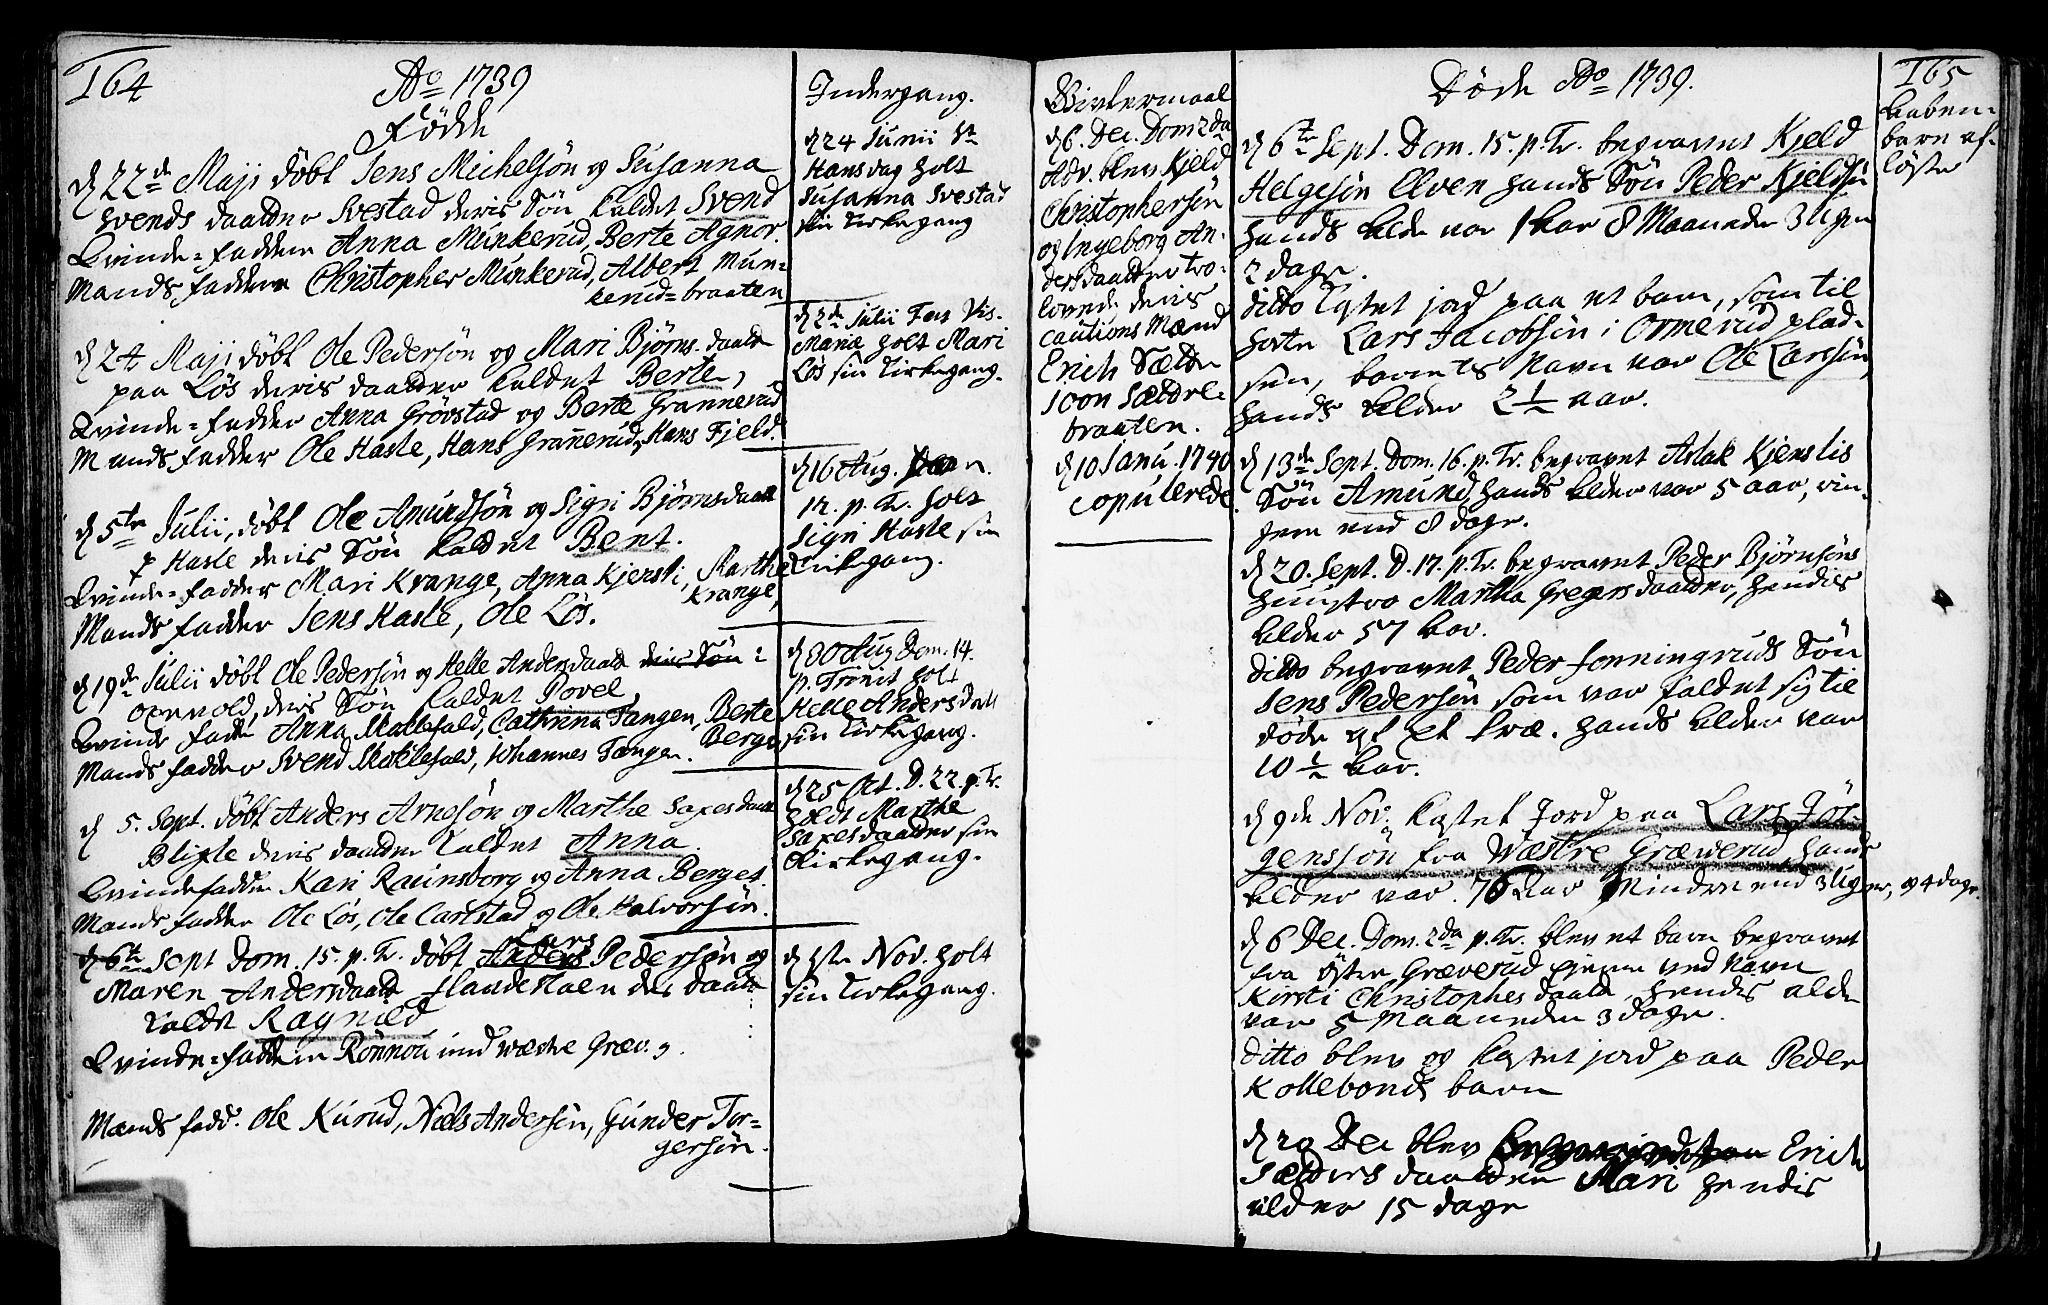 164
Ao 1739
Fødde
d 22de Maji døbt Jens Michelsøn og Susanna
Svends daatter Svestad deris Søn kaldet Svend
Qvinde-faddere Anna Munkerud, Berte Agnor.
Mands faddere Christopher Munkerud, Albert Mun-
kerud-braaten
d 24 Maji døbt Ole Pedersøn og Mari Bjørns daatt
paa Løs deris daatter kaldet Berte,
Qvinde-fadder Anna Grøvstad og Berte Grannerud
Mands fadder Ole Hasle, Hans Grañerud, Hans Fjeld.
d 5te Julii, døbt Ole Amundsøn og Sigri Bjørnsdaatt
p Hasle deris Søn kaldet Bent.
Qvinde-fadder Mari Krange, Anna Kjensli, Marthe
Krange,
Mands fadder Jens Hasle, Ole Løs.
d 19de Julii døbt Ole Pedersøn og Helle Andersdaatt deris Søn
deris Søn kaldet Povel,
Qvinde fadde Anna Skottefald, Cathrina Tangen, Berte
Berge,
Mands fadder Svend Skottefald, Johannes Tangen.
d 5. Sept. døbt Anders Arnesøn og Marthe Saxesdaatt
Blixle deris daatter kaldet Anna.
Qvindefadder Kari Ravnsborg og Anna Berges.
Mands fadder Ole Løs, Ole Carlstad og Ole Halvorsøn.
d 6te Sept Dom. 15. p. Tr. døbt Anders Lars Pedersøn og
Maren Andersdaatt des daatt
kaldt Ragnild
Qvinde-faddere Rønnou
Mands fadd. Ole Kurud, Niels Andersøn, Gunder Tor-
gersøn.
Indergang.
d 24 Junii St
Hansdag holt
Susanna Svestad
sin Kirkegang
d 2de Julii Fest Vis.
Mariæ holt Mari
Løs sin Kirkegang.
d 16 Aug.
12. p. Tr. holt
Sigri Hasle sin
Kirkegang.
d 30 Aug Dom. 14.
p. Trinit holt
Helle Andersdatt
sin Kirkegang.
d 25 Oct. D. 22. p. Tr.
holdt Marthe
Saxesdaatter sin
Kirkegang.
d 1ste Nov. holt
sin Kirkegang.
d 6. Dec. Dom 2da
Adv. blev Kjeld
Christophersøn
og Ingeborg An-
dersdaatter tro-
lovede deris
cautions Mænd
Erich Sætre
Joon Sætre-
braaten.
d 10 Janu. 1740
copulerede.
Døde Ao 1739.
165
d 6te Sept. Dom. 15. p. Tr. begravet Kjeld
Helgesøn Elven hands Søn Peder Kjeldsøn
hands alder var 1 aar 8 Maaneder 3 Uger
2 dage.
ditto kastet jord paa et barn, som til
hørte Lars Jacobsøn i Ormerud plad-
sen, barnets Navn var Ole Larssøn,
hands alder 2 1/2 aar.
d 13de Sept. Dom. 16. p. Tr. begravet Aslak Kjenslis
Søn Amund, hands alder var 5 aar, rin-
gere end 8 dage.
d 20. Sept. D. 17. p. Tr. begravet Peder Bjørnsøns
hustro Martha Gregersdaatter, hendis
alder 57 aar.
ditto begravet Peder Fonningruds Søn
Jens Pedersøn som var faldet sig til
døde af et træ. hands alder var
10 1/2 aar.
d 9de Nov. kastet Jord paa Lars Jør-
genssøn fra Wæstre Græverud, hands
alder var. 76 Aar Mindre end 3 Uger, og 4 dage.
d 6 Dec. Dom. 2da p. Tr. blev et barn begravet
fra Øster Græverud ved Navn
Kirsti Christophersdaatt, hendes alder
var 5 Maaneder 3 dage.
Ditto blev og kastet jord paa Peder
Kollebonds barn
d 29 Dec blev Erich
Sætters daatter Mari hendis
alder 15 dage